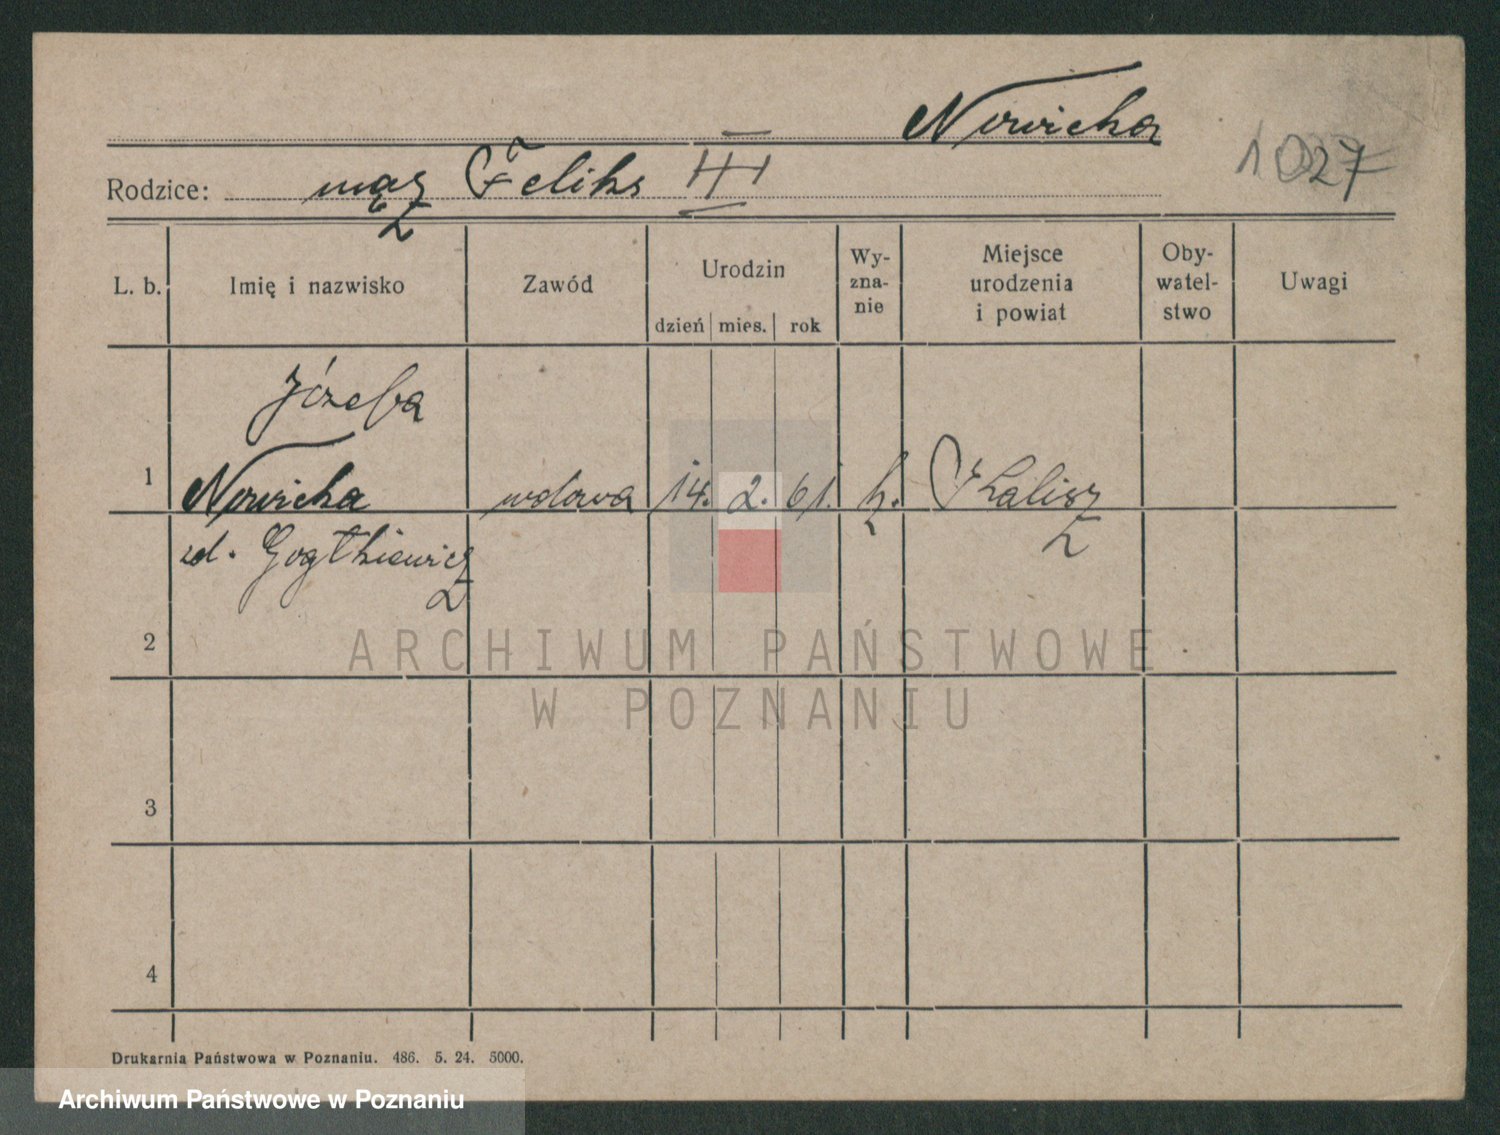 Nowicka
1027
Rodzice: mąż Feliks III
L. b. Imię i nazwisko Zawód Urodzin Wy-zna-nie Miejsce urodzenia i powiat Oby-watel-stwo Uwagi
dzień mies. rok
Józefa
1 Nowicka wdowa 14. 2. 61. k. Kalisz
zd.
2
ARCHIWUM PAŃSTWOWE
W POZNANIU
3
4
Drukarnia Państwowa w Poznaniu. 486. 5. 24. 5000.
Archiwum Państwowe w Poznaniu